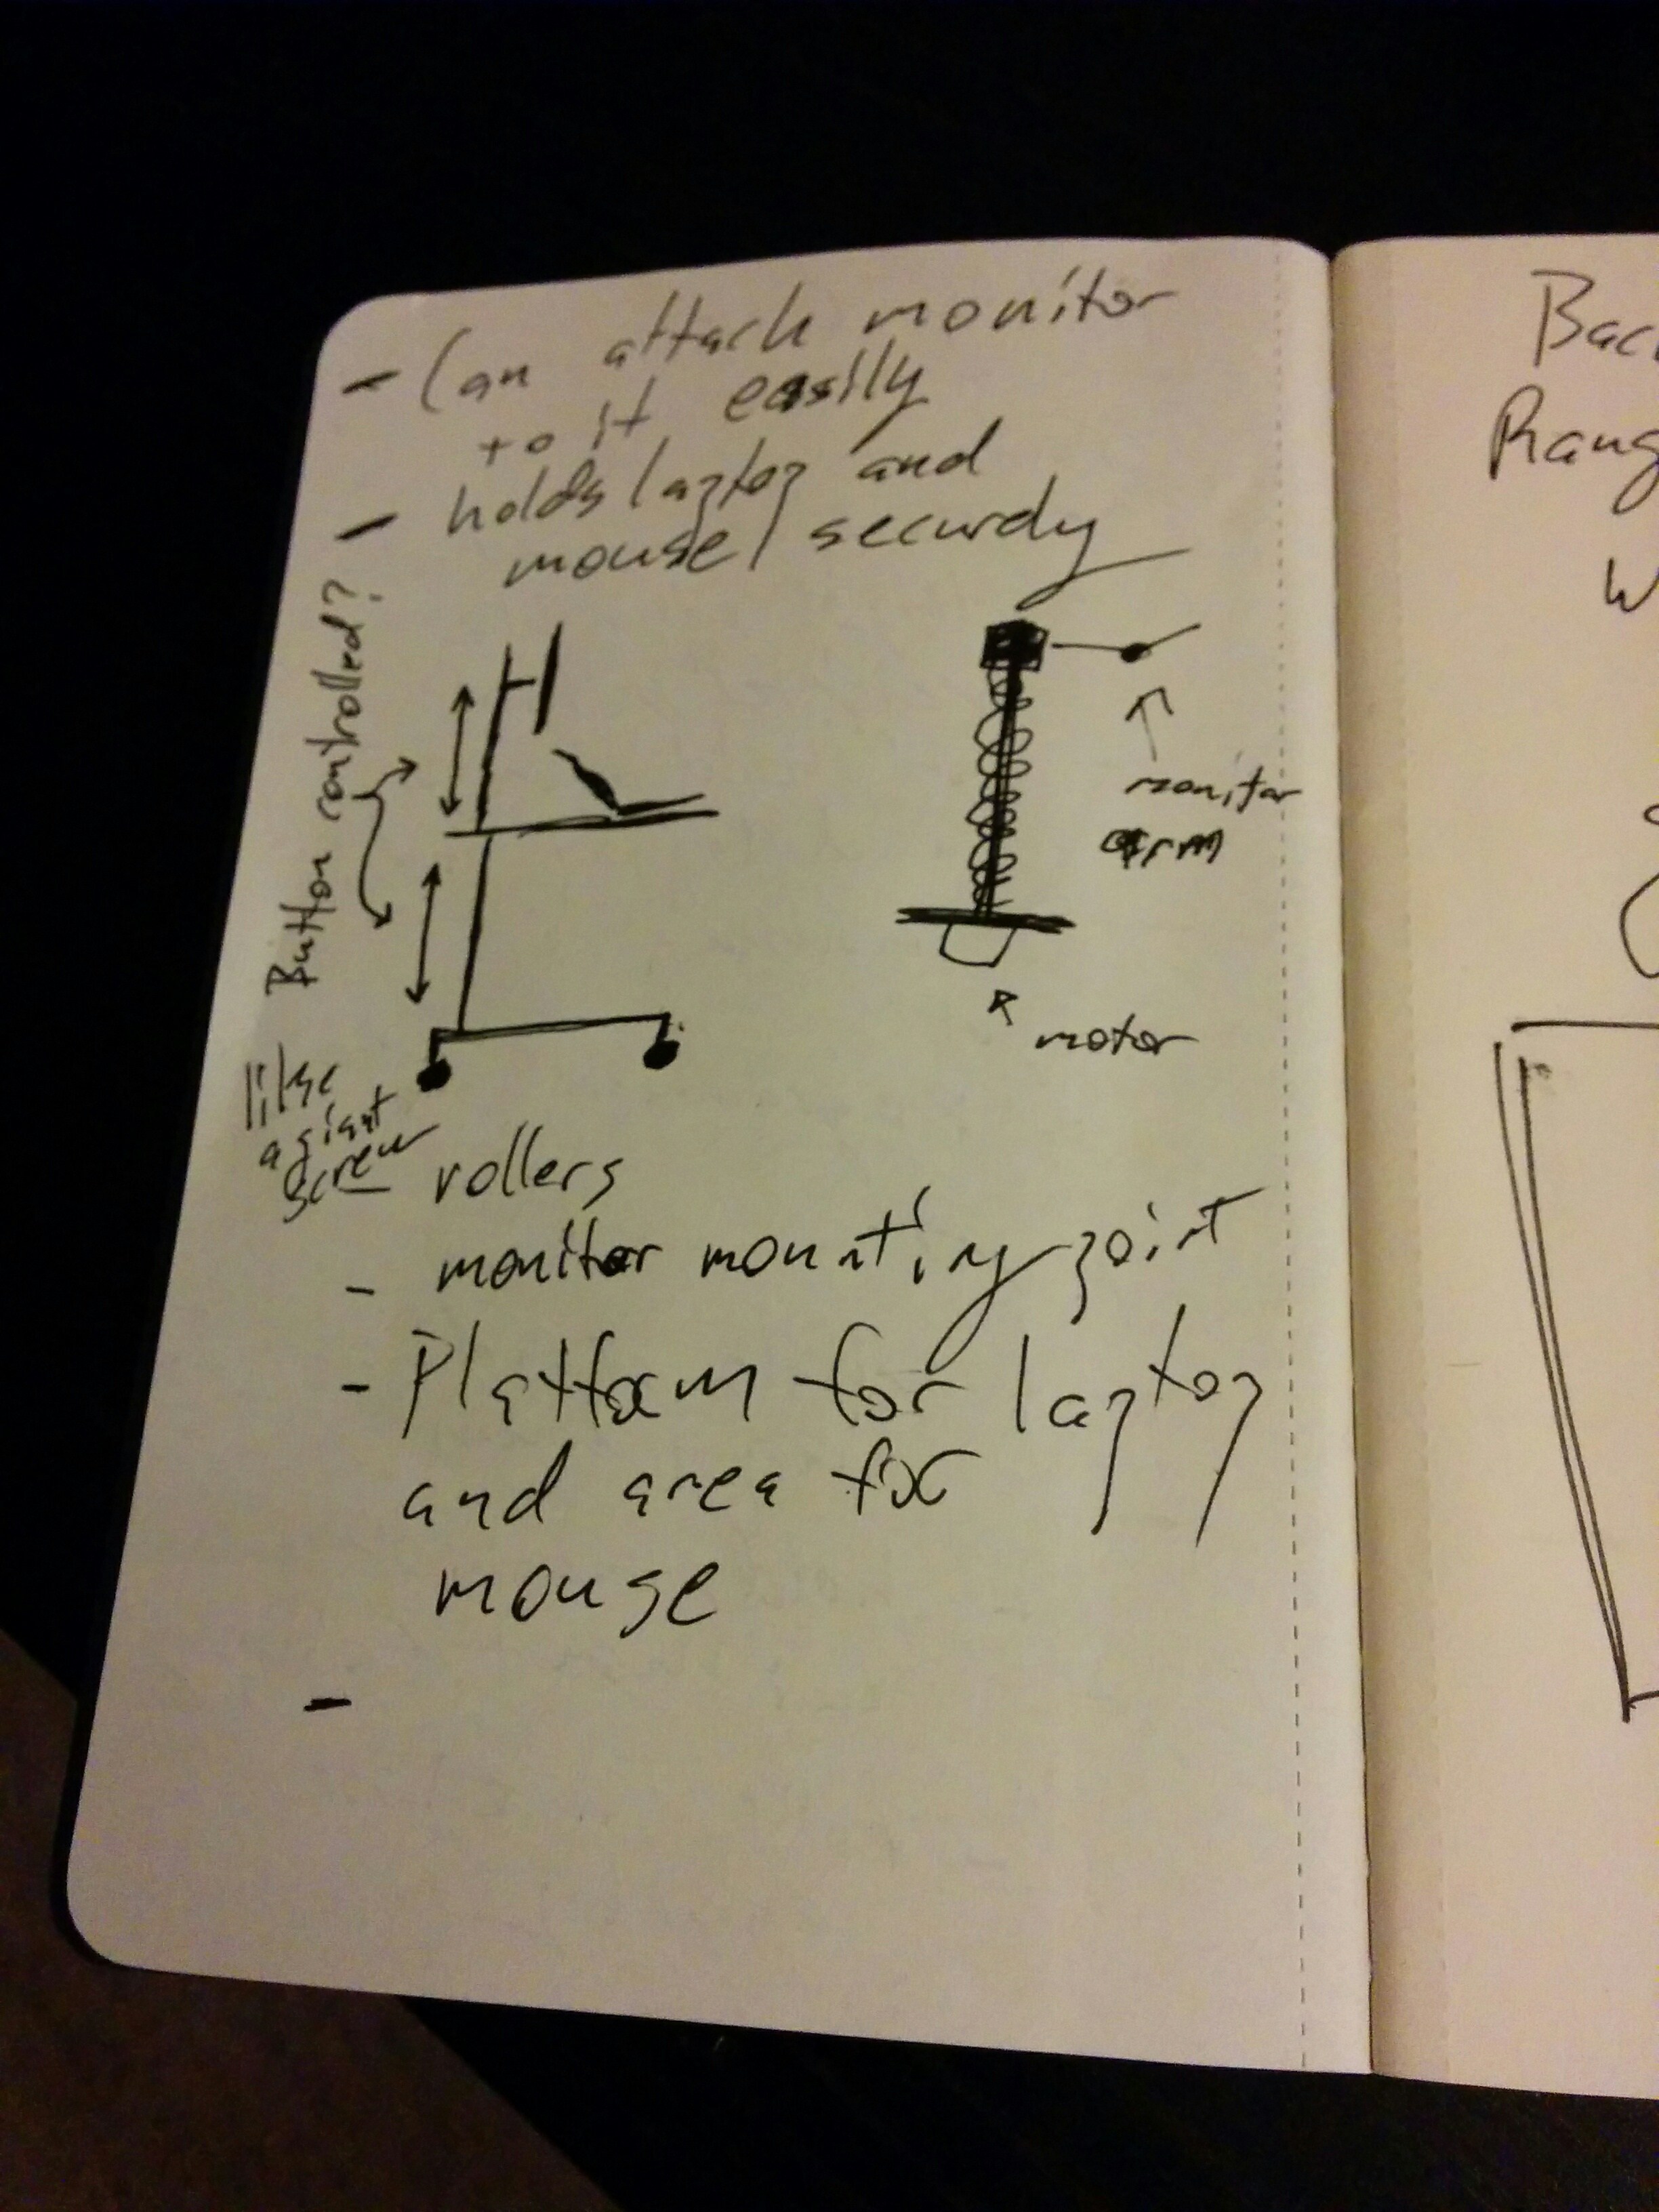 - Can attach monitor
to it easily
- holds laptop and
mouse securely
Button controlled?
monitor
arm
motor
like
a giant
screw
- rollers
- monitor mounting joint
- Platform for laptop
and area for
mouse
-
Rang
W